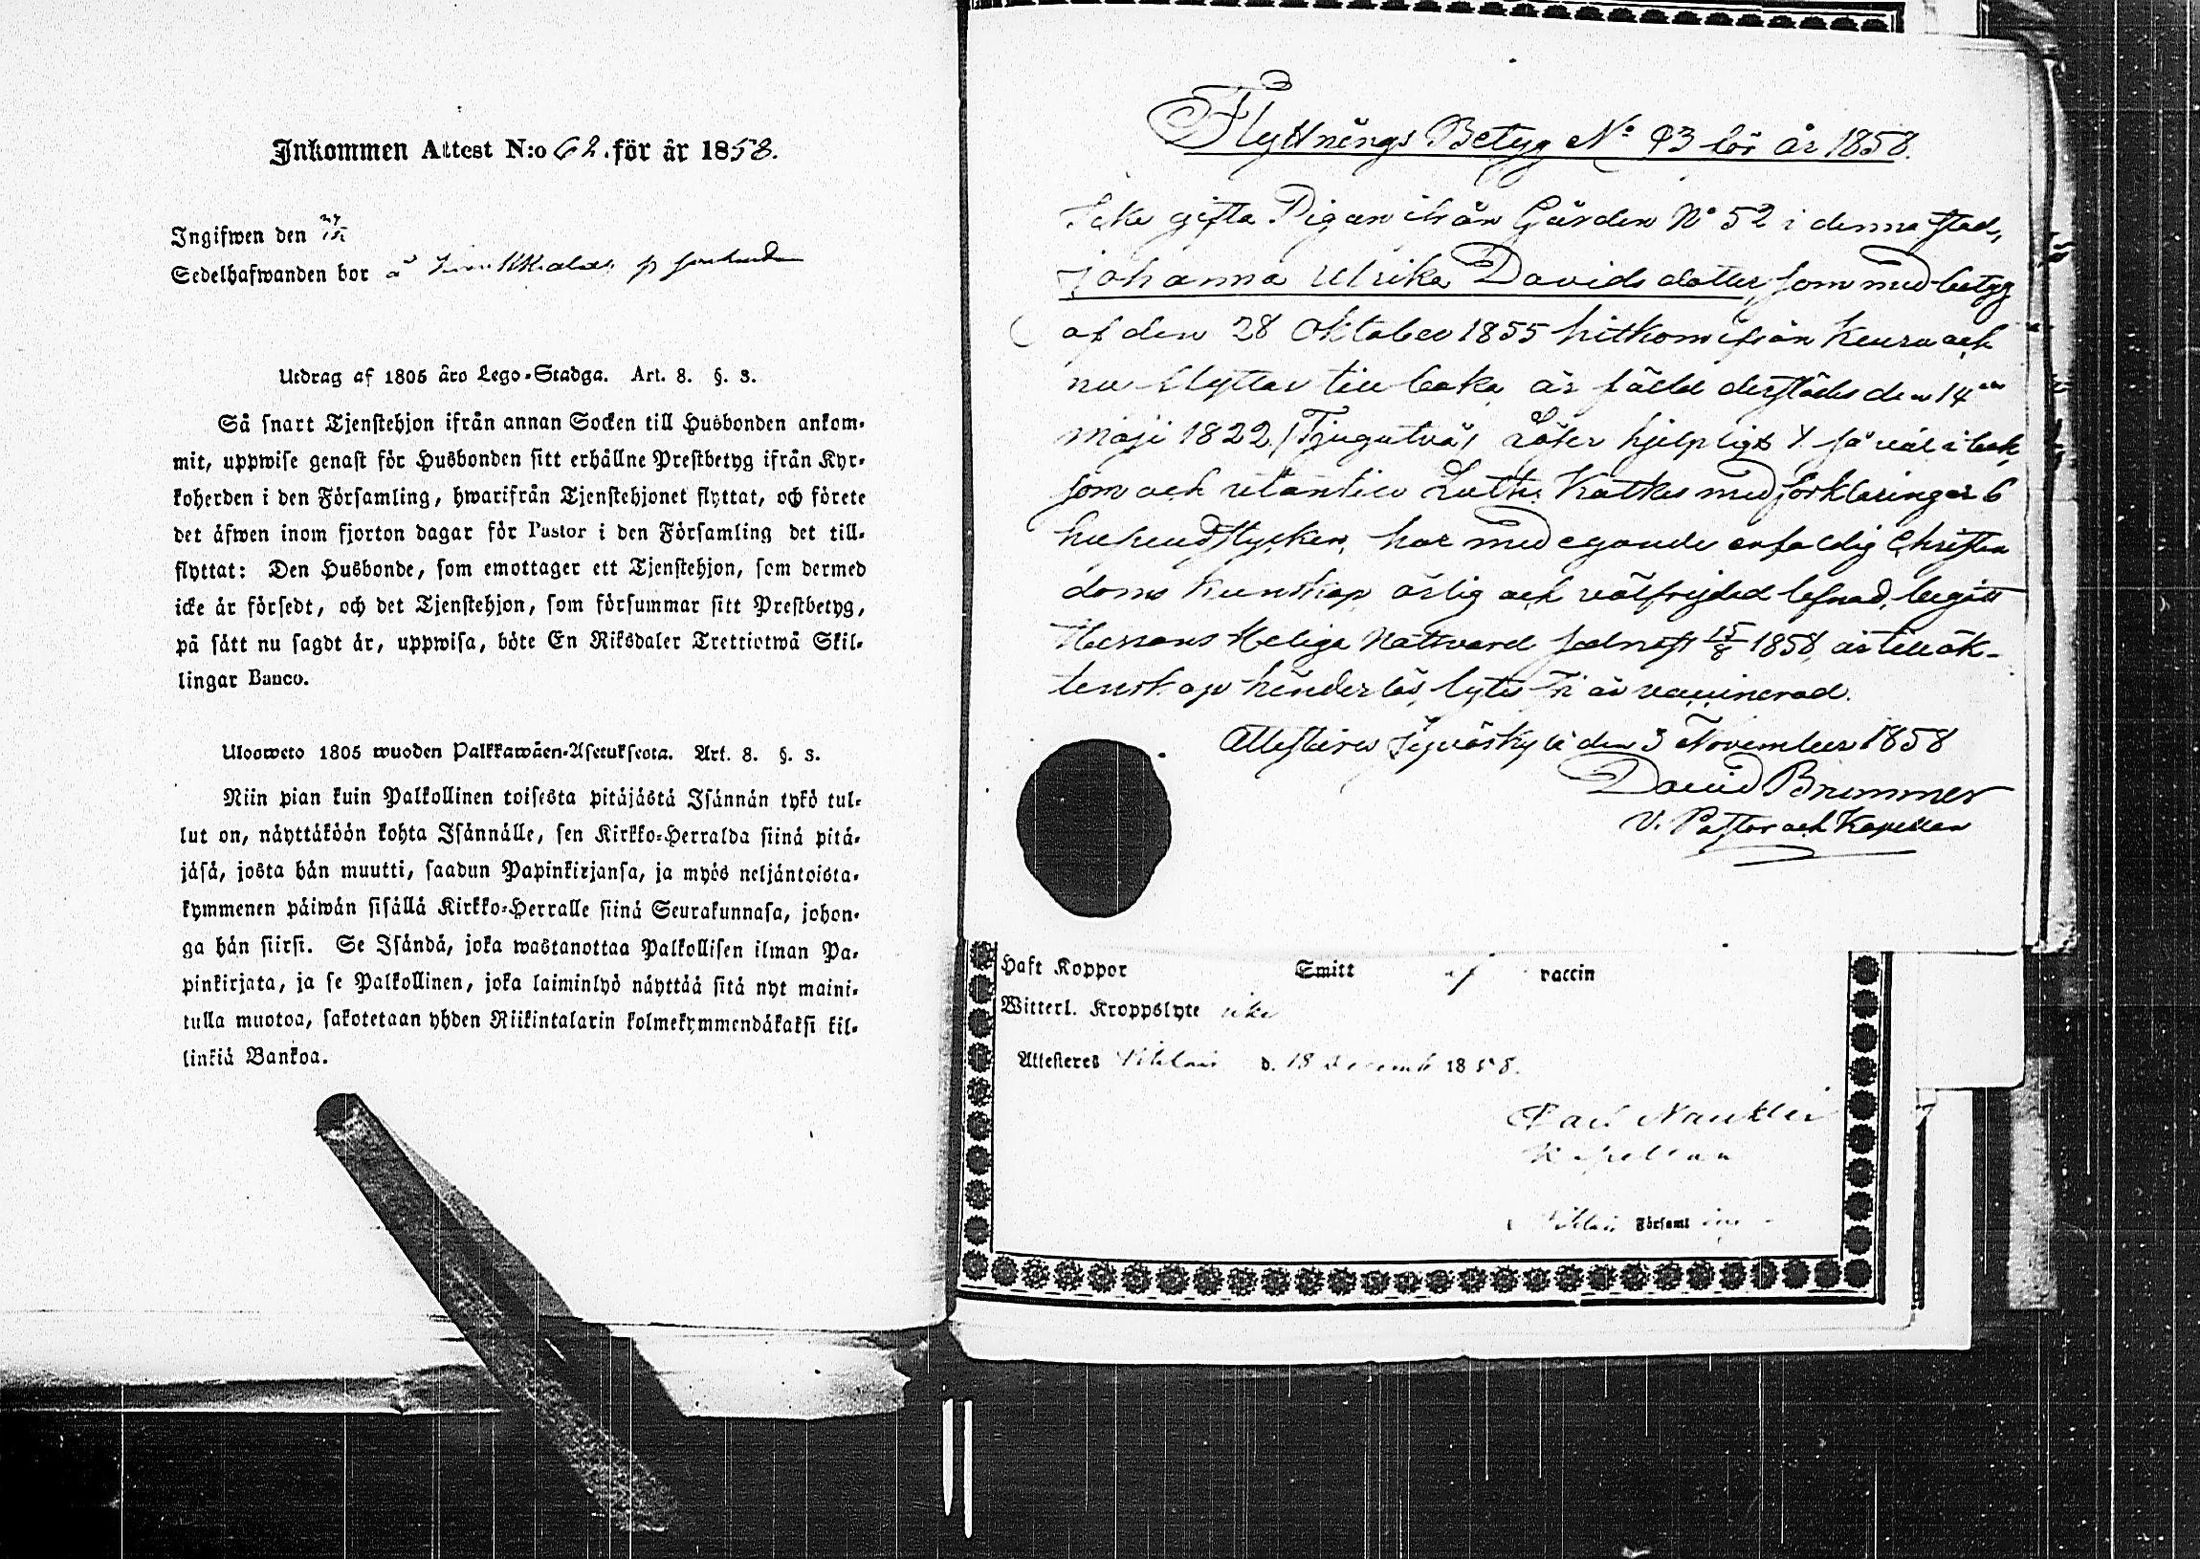 Inkommen Attest N:o 62. för år 1858.
Ingifwen den
Sedelhafwanden bor å
Utdrag af 1805 års Lego-Stadga. Art. 8. §. 3.
Så snart Tjenstehjon ifrån annan Socken till Husbonden ankom-
mit, uppwise genast för Husbonden sitt erhållne Prestbetyg ifrån Kyr-
koherden i den Församling, hwarifrån Tjenstehjonet flyttat, och förete
det äfwen inom fjorton dagar för Pastor i den Församling det till-
flyttat: Den Husbonde, som emottager ett Tjenstehjon, som dermed
icke är försedt, och det Tjenstehjon, som försummar sitt Prestbetyg,
på sätt nu sagdt är, uppwisa, böte En Riksdaler Trettiotwå Skil-
lingar Banco.
Ulosweto 1805 wuoden Palkkawäen-Asetuksesta. Art. 8. §. 3.
Niin pian kuin Palkollinen toisesta pitäjästä Isännän tykö tul-
lut on, näyttäköön kohta Isännälle, sen Kirkko-Herralda siinä pitä-
jäsä, josta hän muutti, saadun Papinkirjansa, ja myös neljäntoista-
kymmenen päiwän sisällä Kirkko-Herralle siinä Seurakunnasa, johon-
ga hän siirsi. Se Isändä, joka wastanottaa Palkollisen ilman Pa-
pinkirjata, ja se Palkollinen, joka laiminlyö näyttää sitä nyt maini-
tulla muotoa, sakotetaan yhden Riikintalarin kolmekymmendäkaksi kil-
linkiä Bankoa.
Flyttnings Betyg No 93 för år 1858.
Icke gifta Pigan ifrån Gården No 52 i denna stad,
Johanna Ulrika Davidsdotter, som med betyg
af den 28 Oktober 1855 hitkom ifrån Keuru och
nu flyttar tillbaka är född derstädes den 14
Maji 1822 (Tjugutvå) Läser hjelpligt så väl i bok,
som och utantill Luth. Katkes med förklaringar 6
hufvudstycken, har med egande enfaldig Christen
doms kunskap ärlig och välfrejdad lefnad, begått
Herrans Heliga Nattvard sednast 15/8 1858, är till äk-
tenskap hinderlös, lytes fri är vaccinerad.
Attesterar Jyväskylä den 3 November 1858
David Brummer
V. Pastor och Kapellan
Haft Koppor Smitt af vaccin
Witterl. Kroppslyte icke
Attesteras d. 18 Decemb 1858.
Kapellan
Församling